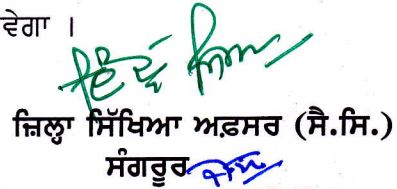 ਵੇਗਾ ।
ਜ਼ਿਲ੍ਹਾ ਸਿੱਖਿਆ ਅਫ਼ਸਰ (ਸੈ.ਸਿ.)
ਸੰਗਰੂਰ